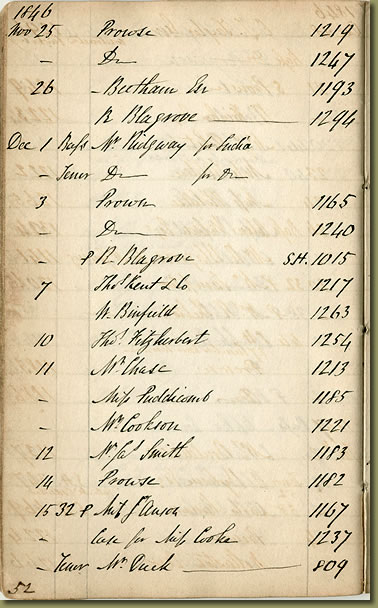 1846
Nov 25 Prowse 1219
— Do 1247
26 Beetham Esr 1193
R Blagrove — 1294
Dec 1 Bass Mr Ridgway for India
— Tenor Do for Do
3 Prowse 1165
— Do 1240
— R Blagrove S.H. 1015
7 Thos Kent & Co 1217
W. Binfield 1263
10 Thos. Fitzherbert 1254
11 Mr Chase 1213
— Miss Puddicomb 1185
— Mr Cookson 1221
12 Mr Jas Smith 1183
14 Prowse 1182
15 32 Miss I'anson 1167
— Case for Miss Cooke 1237
— Tenor Mr Duck — 809
52